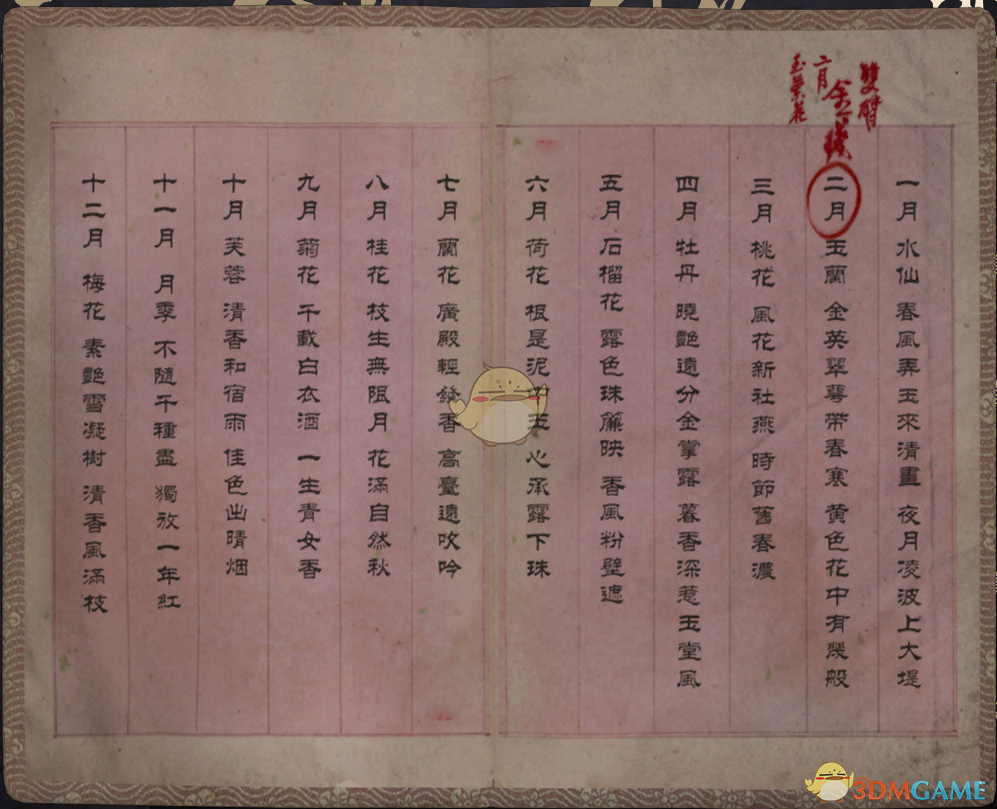 雙臂
一月 水仙 春風弄玉來清晝 夜月凌波上大堤
二月 玉蘭 金英翠萼帶春寒 黄色花中有幾般
三月 桃花 風花新社燕 時節舊春濃
四月 牡丹 曉艷遠分金掌露 暮香深惹玉堂風
五月 石榴花 露色珠簾映 香風粉壁遮
六月 荷花 根是泥中玉 心承露下珠
七月 蘭花 廣殿輕發香 高臺遠吹吟
八月 桂花 枝生無限月 花滿自然秋
九月 菊花 千載白衣酒 一生青女香
十月 芙蓉 清香和宿雨 佳色出晴烟
十一月 月季 不隨千種盡 獨放一年紅
十二月 梅花 素艷雪凝樹 清香風滿枝
3DMGAME